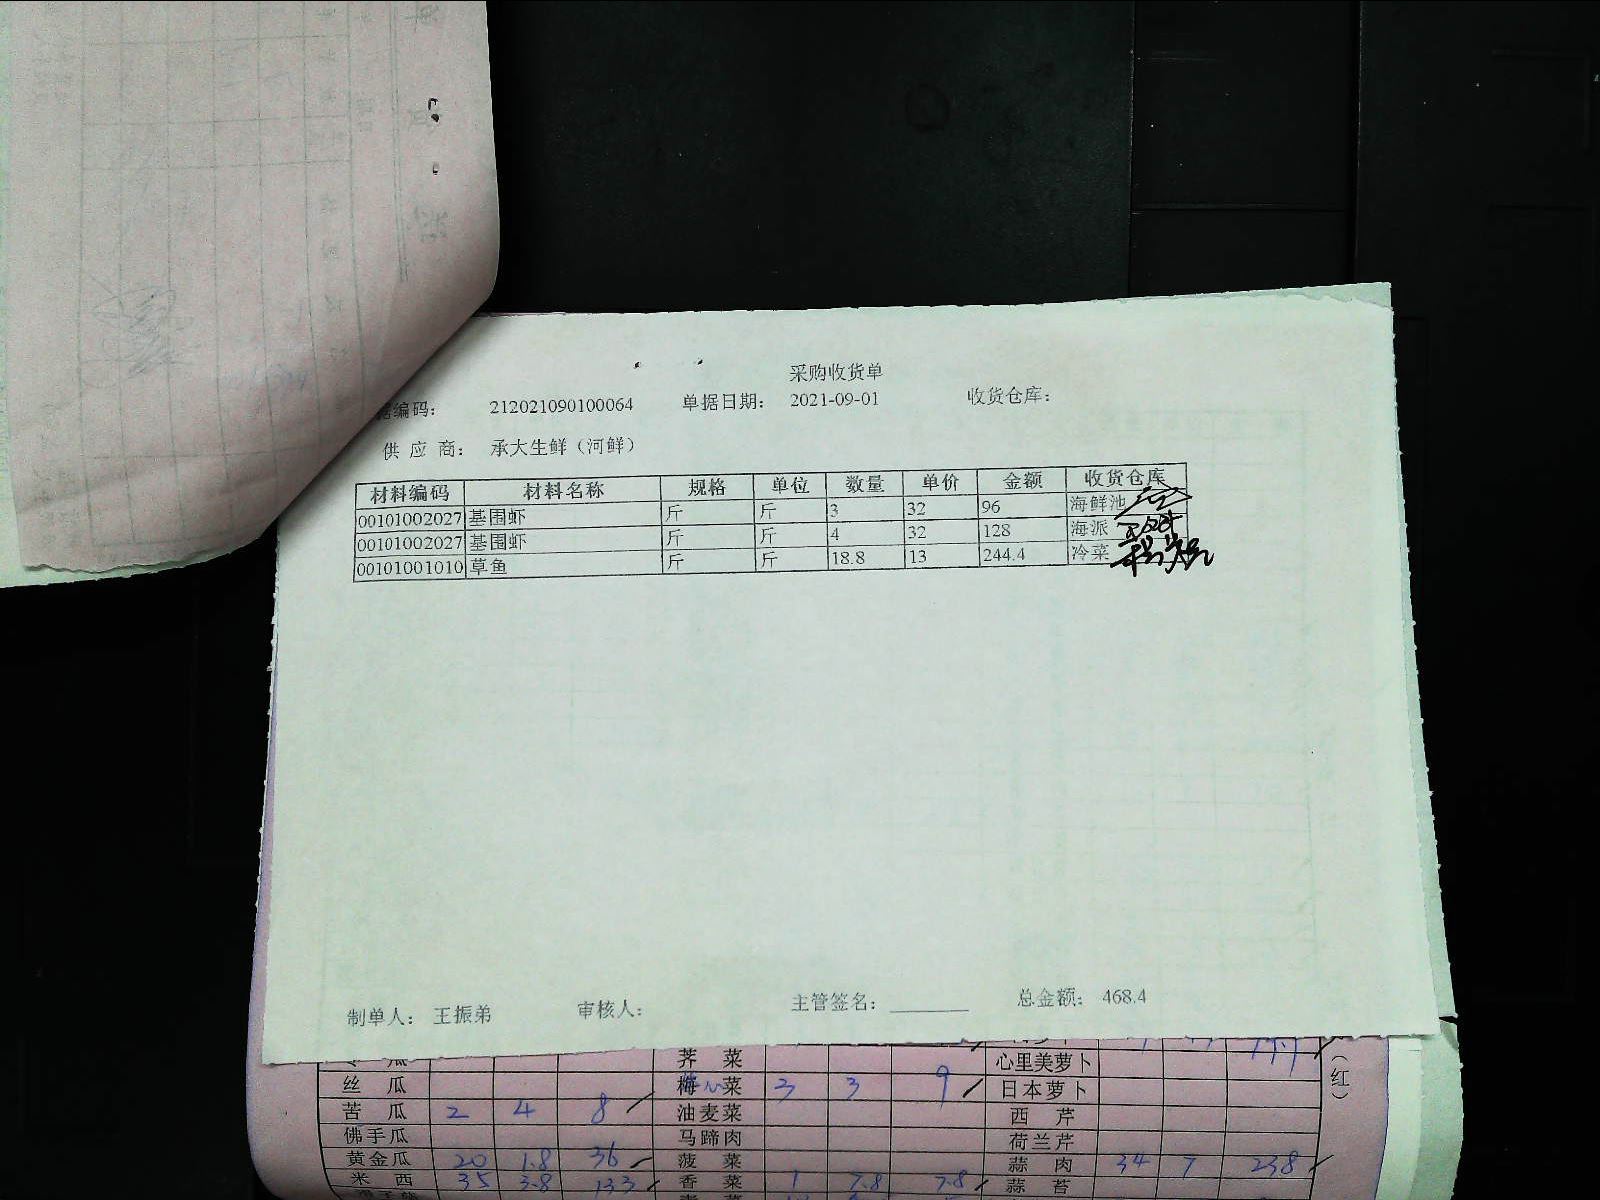 采购收货单
编码： 212021090100064 单据日期： 2021-09-01 收货仓库：
供应商： 承大生鲜（河鲜）
材料编码 材料名称 规格 单位 数量 单价 金额 收货仓库
00101002027 基围虾 斤 斤 3 32 96 海鲜池
00101002027 基围虾 斤 斤 4 32 128 海派
00101001010 草鱼 斤 斤 18.8 13 244.4 冷菜
制单人： 王振弟 审核人： 主管签名： 总金额： 468.4
荠菜 心里美萝卜
丝瓜 梅菜 3 3 9 日本萝卜
苦瓜 2 4 8 油麦菜 西芹
佛手瓜 马蹄肉 荷兰芹
黄金瓜 20 1.8 36 菠菜 蒜肉 34 7 238
米西 35 3.8 133 香菜 1 7.8 7.8 蒜苔
（红）